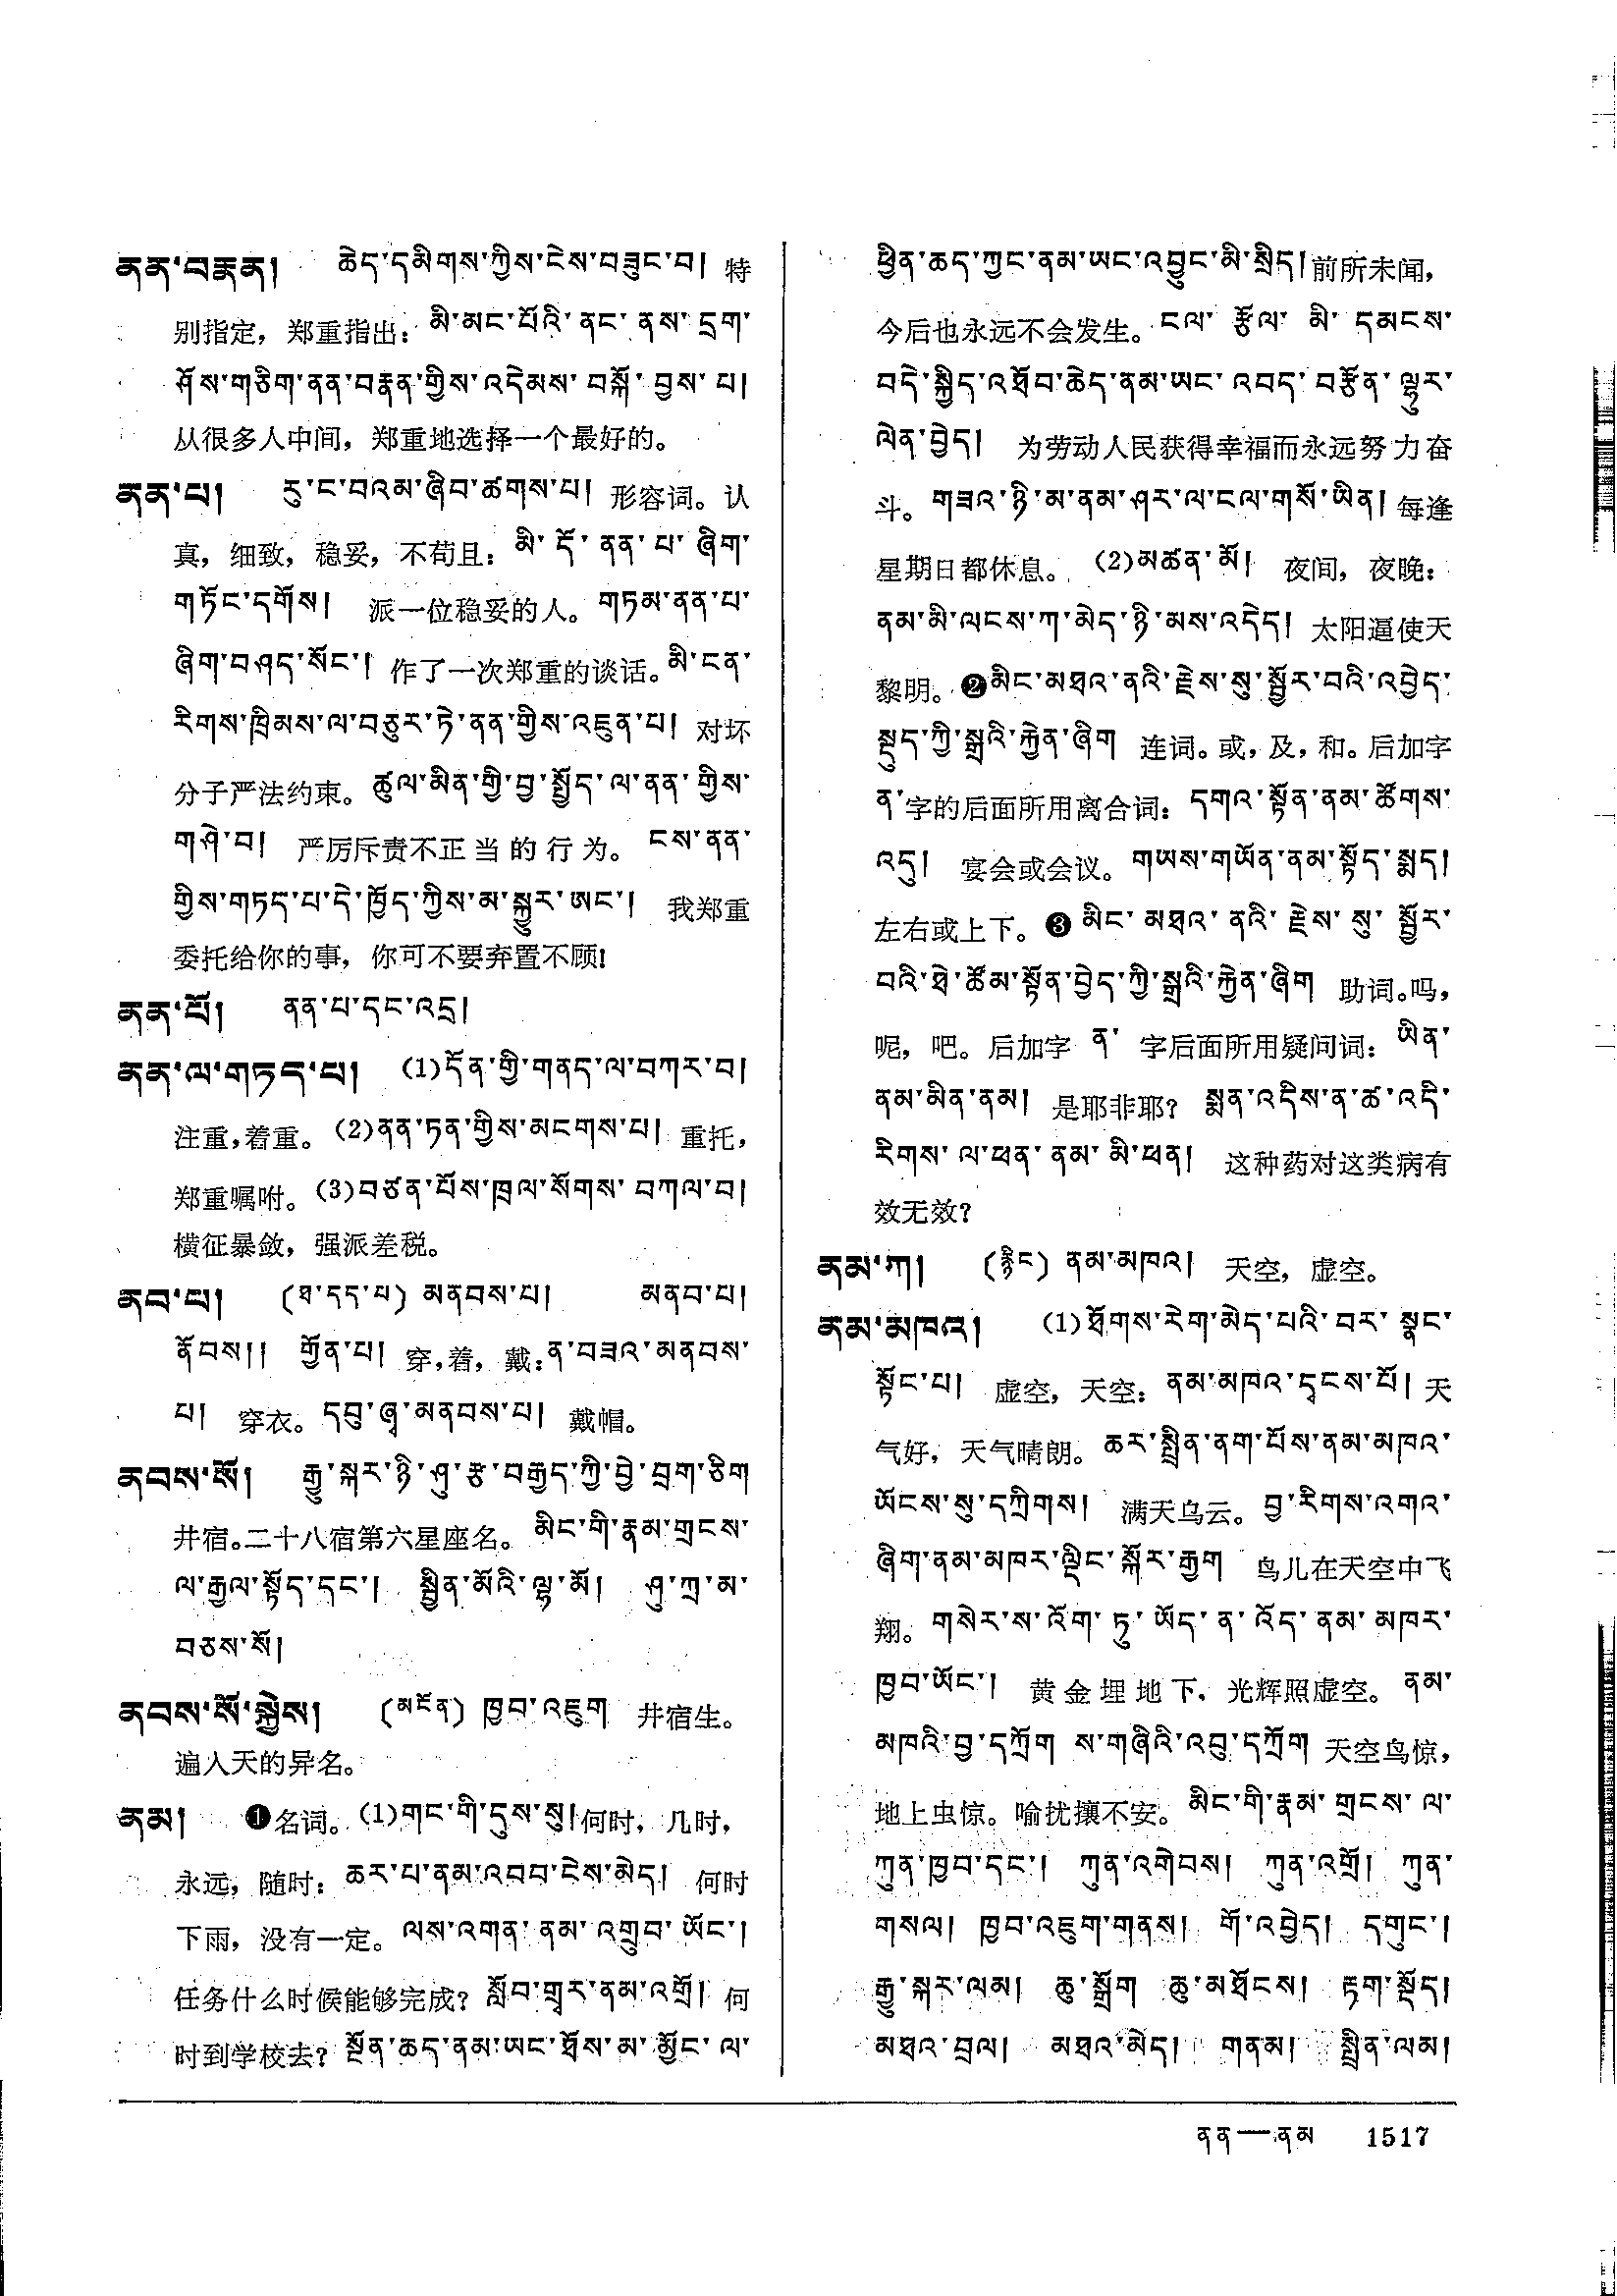 ནན་བརྣན། ཆེད་དམིགས་ཀྱིས་ངེས་བཟུང་བ། 特
别指定，郑重指出：མི་མང་པོའི་ནང་ནས་དྲག་
ཤོས་གཅིག་ནན་བརྣན་གྱིས་འདེམས་བསྐོ་བྱས་པ།
从很多人中间，郑重地选择一个最好的。
ནན་པ། རུ་ང་བའམ་ཞིབ་ཚགས་པ། 形容词。认
真，细致，稳妥，不苟且：མི་དོ་ནན་པ་ཞིག་
གཏོང་དགོས། 派一位稳妥的人。གཏམ་ནན་པ་
ཞིག་བཤད་སོང་། 作了一次郑重的谈话。མི་ངན་
རིགས་ཁྲིམས་ལ་བཅུར་ཏེ་ནན་གྱིས་འཇུན་པ། 对坏
分子严法约束。ཚུལ་མིན་གྱི་བྱ་སྤྱོད་ལ་ནན་གྱིས་
གཤེ་བ། 严厉斥责不正当的行为。ངས་ནན་
གྱིས་གཏད་པ་དེ་ཁྱོད་ཀྱིས་མ་སྐྱུར་ཨང་། 我郑重
委托给你的事，你可不要弃置不顾！
ནན་པོ། ནན་པ་དང་འདྲ།
ནན་ལ་གཏད་པ། (1)དོན་གྱི་གནད་ལ་བཀར་བ།
注重，着重。(2)ནན་ཏན་གྱིས་མངགས་པ། 重托，
郑重嘱咐。(3)བཙན་པོས་ཁྲལ་སོགས་བཀལ་བ།
横征暴敛，强派差税。
ནབ་པ། (ཐ་དད་པ) མནབས་པ། མནབ་པ།
ནོབས།། གྱོན་པ། 穿，着，戴：ན་བཟའ་མནབས་
པ། 穿衣。དབུ་ཞྭ་མནབས་པ། 戴帽。
ནབས་སོ། རྒྱུ་སྐར་ཉི་ཤུ་རྩ་བརྒྱད་ཀྱི་བྱེ་བྲག་ཅིག
井宿。二十八宿第六星座名。མིང་གི་རྣམ་གྲངས་
ལ་རྒྱལ་སྟོད་དང་། སྦྱིན་མོའི་ལྷ་མོ། ཤུ་ཀྲ་མ་
བཅས་སོ།
ནབས་སོ་སྐྱེས། (མངོན) ཁྱབ་འཇུག 井宿生。
遍入天的异名。
ནམ། ❶名词。(1)གང་གི་དུས་སུ།何时，几时，
永远，随时：ཆར་པ་ནམ་འབབ་ངེས་མེད། 何时
下雨，没有一定。ལས་འགན་ནམ་འགྲུབ་ཡོང་།
任务什么时候能够完成？སློབ་གྲྭར་ནམ་འགྲོ། 何
时到学校去？སྔོན་ཆད་ནམ་ཡང་ཐོས་མ་མྱོང་ལ་
ཕྱིན་ཆད་ཀྱང་ནམ་ཡང་འབྱུང་མི་སྲིད།前所未闻，
今后也永远不会发生。ངལ་རྩོལ་མི་དམངས་
བདེ་སྐྱིད་འཐོབ་ཆེད་ནམ་ཡང་འབད་བརྩོན་ལྷུར་
ལེན་བྱེད། 为劳动人民获得幸福而永远努力奋
斗。གཟའ་ཉི་མ་ནམ་ཤར་ལ་ངལ་གསོ་ཡིན། 每逢
星期日都休息。(2)མཚན་མོ། 夜间，夜晚：
ནམ་མི་ལངས་ཀ་མེད་ཉི་མས་འདེད། 太阳逼使天
黎明。❷མིང་མཐའ་ནའི་རྗེས་སུ་སྦྱོར་བའི་འབྱེད་
སྡུད་ཀྱི་སྒྲའི་རྐྱེན་ཞིག 连词。或，及，和。后加字
ན་字的后面所用离合词：དགའ་སྟོན་ནམ་ཚོགས་
འདུ། 宴会或会议。གཡས་གཡོན་ནམ་སྟོད་སྨད།
左右或上下。❸མིང་མཐའ་ནའི་རྗེས་སུ་སྦྱོར་
བའི་ཐེ་ཚོམ་སྟོན་བྱེད་ཀྱི་སྒྲའི་རྐྱེན་ཞིག 助词。吗，
呢，吧。后加字 ན་ 字后面所用疑问词：ཡིན་
ནམ་མིན་ནམ། 是耶非耶？སྨན་འདིས་ན་ཚ་འདི་
རིགས་ལ་ཕན་ནམ་མི་ཕན། 这种药对这类病有
效无效？
ནམ་ཀ། (རྙིང) ནམ་མཁའ། 天空，虚空。
ནམ་མཁའ། (1)ཐོགས་རེག་མེད་པའི་བར་སྣང་
སྟོང་པ། 虚空，天空：ནམ་མཁའ་དྭངས་པོ། 天
气好，天气晴朗。ཆར་སྤྲིན་ནག་པོས་ནམ་མཁའ་
ཡོངས་སུ་དཀྲིགས། 满天乌云。བྱ་རིགས་འགའ་
ཞིག་ནམ་མཁར་ལྡིང་སྐོར་རྒྱག 鸟儿在天空中飞
翔。གསེར་ས་འོག་ཏུ་ཡོད་ན་འོད་ནམ་མཁར་
ཁྱབ་ཡོང་། 黄金埋地下，光辉照虚空。ནམ་
མཁའི་བྱ་དཀྲོག ས་གཞིའི་འབུ་དཀྲོག 天空鸟惊，
地上虫惊。喻扰攘不安。མིང་གི་རྣམ་གྲངས་ལ་
ཀུན་ཁྱབ་དང་། ཀུན་འགེབས། ཀུན་འགྲོ། ཀུན་
གསལ། ཁྱབ་འཇུག་གནས། གོ་འབྱེད། དགུང་།
རྒྱུ་སྐར་ལམ། ཆུ་སྒྲོག ཆུ་མཐོངས། རྟག་སྡོད།
མཐའ་བྲལ། མཐའ་མེད། གནམ། སྤྲིན་ལམ།
ནན——ནམ 1517